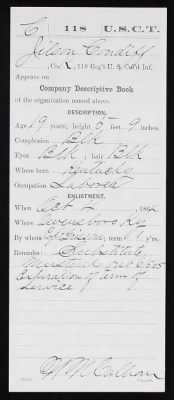 C | 118 | U.S.C.T.
Gilson Cundiff
, Co. L, 118 Reg't U. S. Col'd Inf.
Appears on
Company Descriptive Book
of the organization named above.
DESCRIPTION.
Age 19 years; height 5 feet 9 inches.
Complexion Blk
Eyes Blk; hair Blk
Where born Kentucky
Occupation Laborer
ENLISTMENT.
When Oct 4, 1864.
Where Owensboro Ky
By whom Capt; term 1 y'rs.
Remarks: Substitute
Mustered out
Expiration of term of
Service